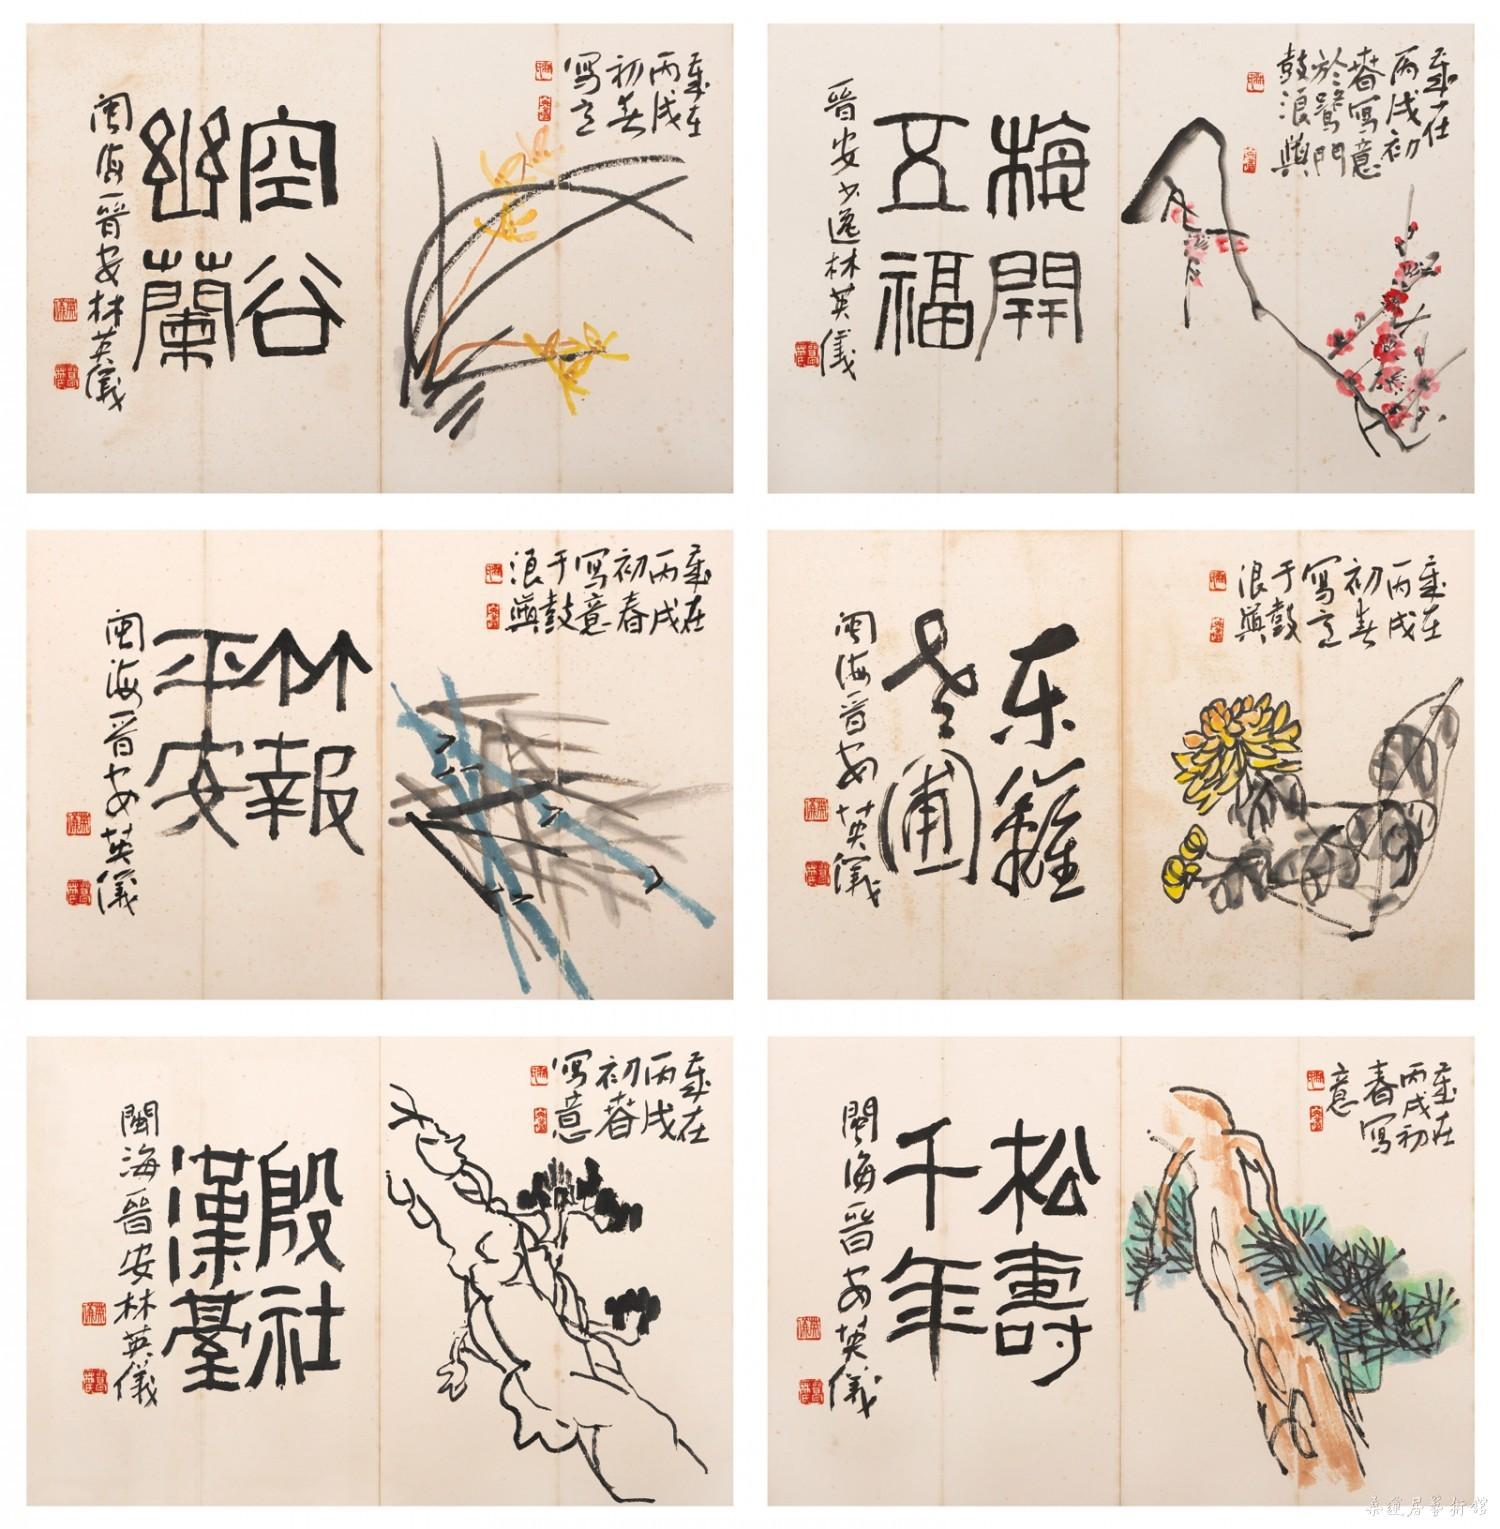 歲在
丙戌
初春
寫意
空谷
幽蘭
閩海晉安林英儀
歲在
丙戌初
春寫意
於鷺門
鼓浪嶼
梅開
五福
晉安少逸林英儀
歲在
丙戌
初春
寫意
于鼓
浪嶼
竹報
平安
閩海晉安英儀
歲在
丙戌
初春
寫意
于鼓
浪嶼
东籬
老圃
闽海晉安英儀
歲在
丙戌
初春
寫意
殷社
漢臺
閩海晉安林英儀
歲在
丙戌初
春寫
意
松壽
千年
閩海晉安英儀